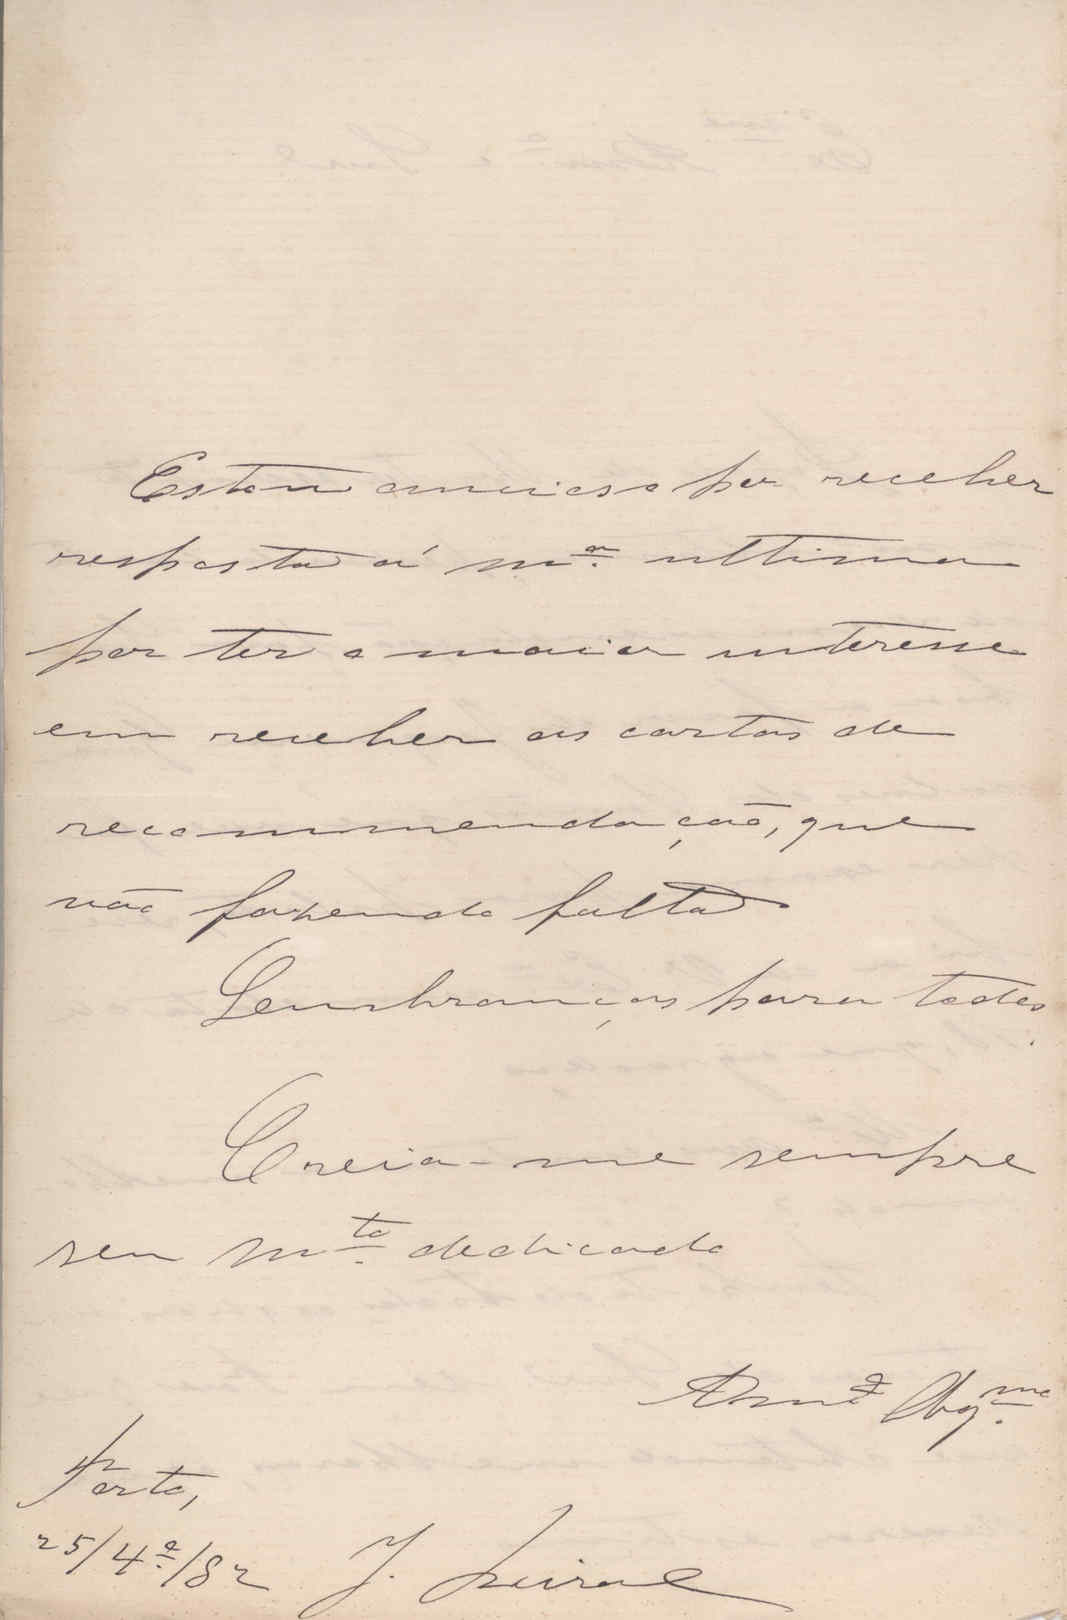 Estou ancioso por receber
resposta á m.ª ultima
por ter o maior interesse
em receber as cartas de
recommendação, que
vão fazendo falta.
Lembranças para todos.
Creia-me sempre
seu m.to dedicado
Am.º Obg.mo
Porto,
25/4.º/82 J.